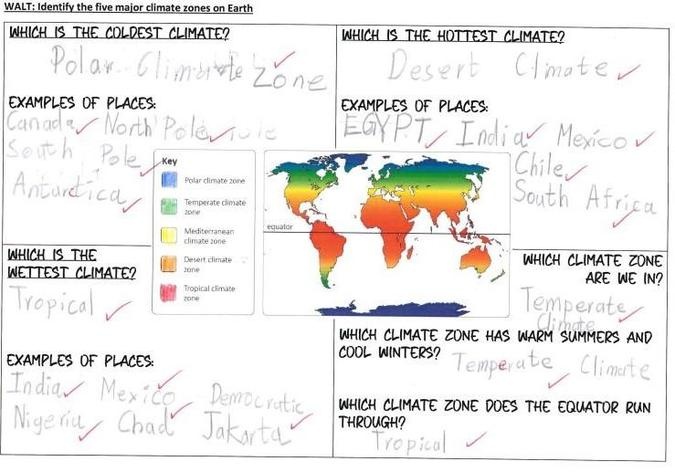 WALT: Identify the five major climate zones on Earth
WHICH IS THE COLDEST CLIMATE?
Polar Climate Zone
EXAMPLES OF PLACES:
Canada North Pole
South Pole
Antarctica
WHICH IS THE HOTTEST CLIMATE?
Desert Climate
EXAMPLES OF PLACES:
EGYPT India Mexico
Chile
South Africa
Key
Polar climate zone
Temperate climate
zone
Mediterranean
climate zone
Desert climate
zone
Tropical climate
zone
equator
WHICH IS THE
WETTEST CLIMATE?
Tropical
EXAMPLES OF PLACES:
India Mexico Democratic
Nigeria Chad Jakarta
WHICH CLIMATE ZONE
ARE WE IN?
Temperate
Climate
WHICH CLIMATE ZONE HAS WARM SUMMERS AND
COOL WINTERS? Temperate Climate
WHICH CLIMATE ZONE DOES THE EQUATOR RUN
THROUGH?
Tropical